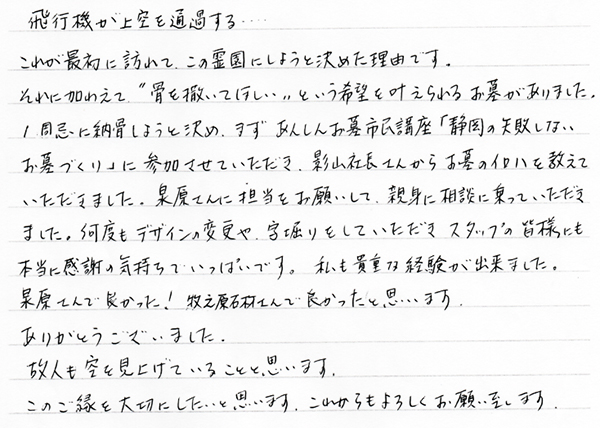 飛行機が上空を通過する‥‥
これが最初に訪れて、この霊園にしようと決めた理由です。
それに加わえて、"骨を撒いてほしい〟という希望を叶えられるお墓がありました。
1周忌に納骨しようと決め、まず あんしんお墓市民講座「静岡の失敗しない
お墓づくり」に参加させていただき、影山社長さんからお墓のイロハを教えて
いただきました。泉原さんに担当をお願いして、親身に相談に乗っていただき
ました。何度もデザインの変更や、字堀りをしていただき スタッフの皆様にも
本当に感謝の気持ちでいっぱいです。私も貴重な経験が出来ました。
泉原さんで良かった！牧之原石材さんで良かったと思います。
ありがとうございました。
故人も空を見上げていることと思います。
このご縁を大切にしたいと思います。これからもよろしくお願い至します。